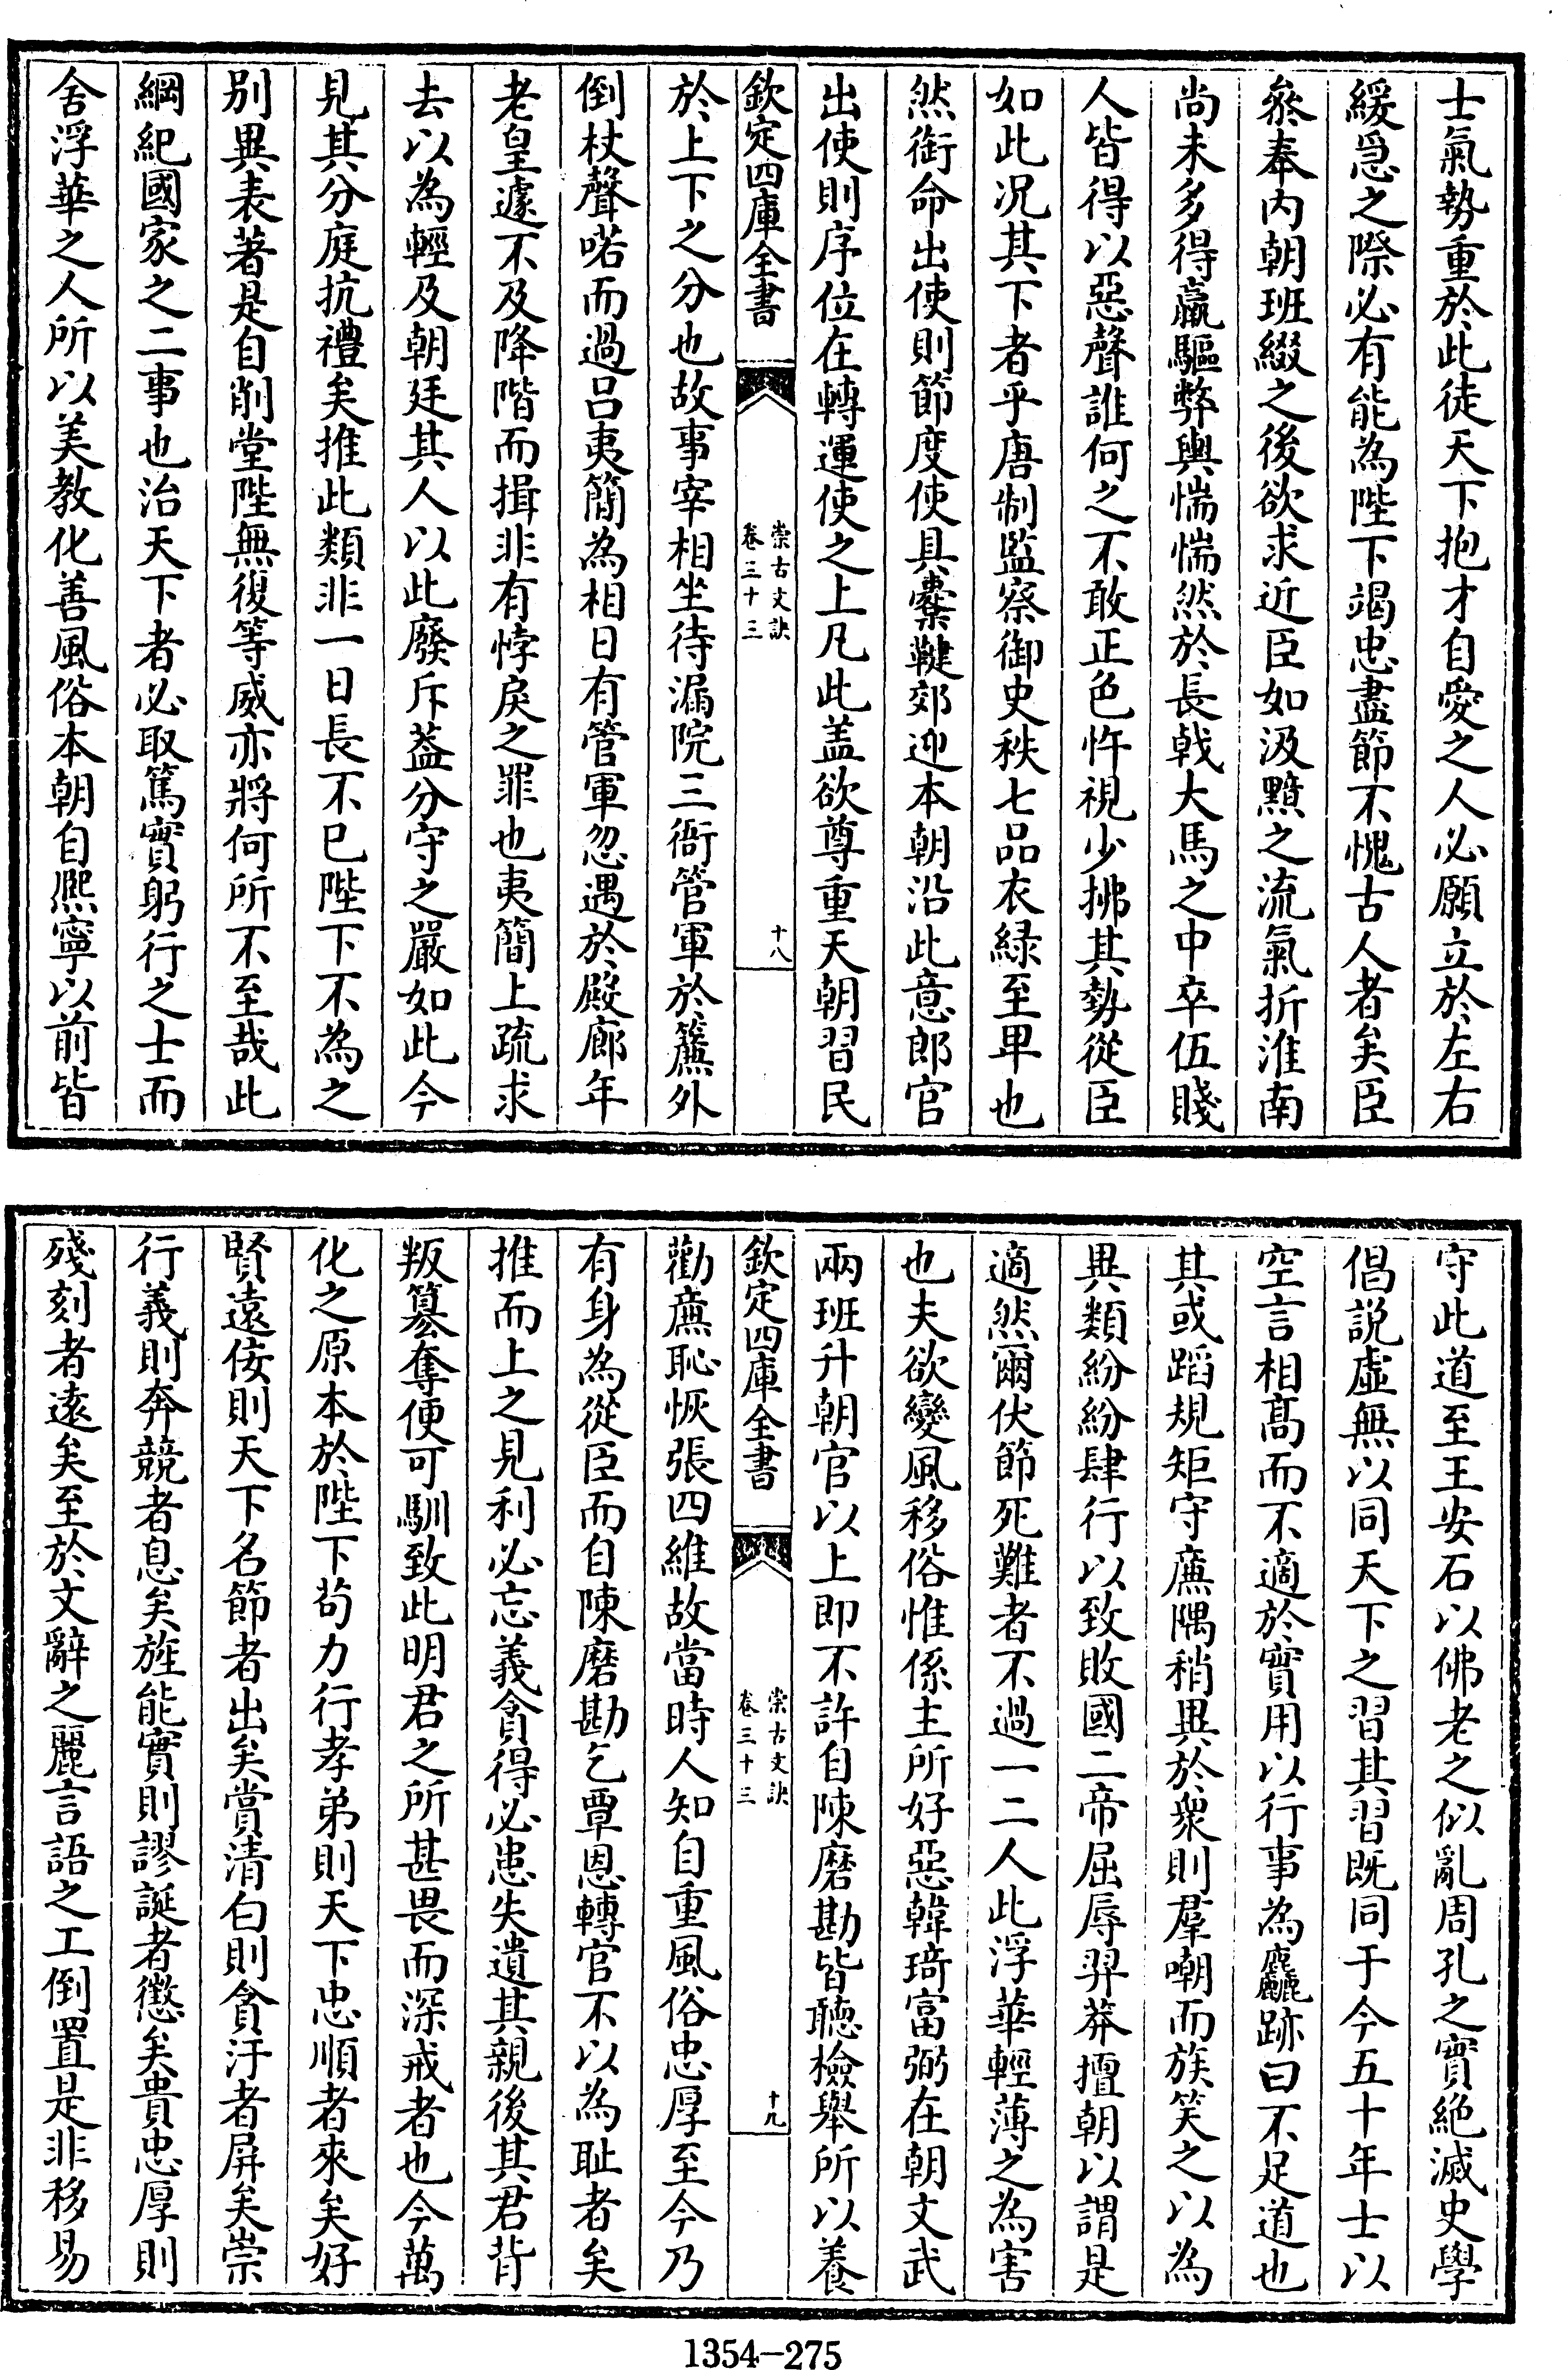 士氣勢重於此徒天下抱才自愛之人必願立於左右
緩急之際必有能為陛下竭忠盡節不愧古人者矣臣
叅奉内朝班綴之後欲求近臣如汲黯之流氣折淮南
尚未多得羸驅弊輿惴惴然於長戟大馬之中卒伍賤
人皆得以惡聲誰何之不敢正色忤視少拂其勢從臣
如此况其下者乎唐制監察御史秩七品衣緑至卑也
然銜命出使則節度使具櫜鞬郊迎本朝沿此意郎官
出使則序位在轉運使之上凡此盖欲尊重天朝習民
欽定四庫全書
崇古文訣
卷三十三
十八
於上下之分也故事宰相坐待漏院三衙管軍於簾外
倒杖聲喏而過吕夷簡為相日有管軍忽遇於殿廊年
老皇遽不及降階而揖非有悖戾之罪也夷簡上疏求
去以為輕及朝廷其人以此廢斥葢分守之嚴如此今
見其分庭抗禮矣推此類非一日長不已陛下不為之
别異表著是自削堂陛無復等威亦將何所不至哉此
綱紀國家之二事也治天下者必取篤實躬行之士而
舍浮華之人所以美教化善風俗本朝自熈寧以前皆
守此道至王安石以佛老之似亂周孔之實絶滅史學
倡説虚無以同天下之習其習既同于今五十年士以
空言相髙而不適於實用以行事為麤跡曰不足道也
其或蹈規矩守廉隅稍異於衆則羣嘲而族笑之以為
異類紛紛肆行以致敗國二帝屈辱羿莽擅朝以謂是
適然爾伏節死難者不過一二人此浮華輕薄之為害
也夫欲變風移俗惟係主所好惡韓琦富弼在朝文武
兩班升朝官以上即不許自陳磨勘皆聽檢舉所以養
欽定四庫全書
崇古文訣
卷三十三
十九
勸廉恥恢張四維故當時人知自重風俗忠厚至今乃
有身為從臣而自陳磨勘乞覃恩轉官不以為耻者矣
推而上之見利必忘義貪得必患失遺其親後其君背
叛簒奪便可馴致此明君之所甚畏而深戒者也今萬
化之原本於陛下茍力行孝弟則天下忠順者來矣好
賢遠佞則天下名節者出矣賞清白則貪汙者屏矣崇
行義則奔競者息矣旌能實則謬誕者懲矣貴忠厚則
殘刻者遠矣至於文辭之麗言語之工倒置是非移易
1354-275